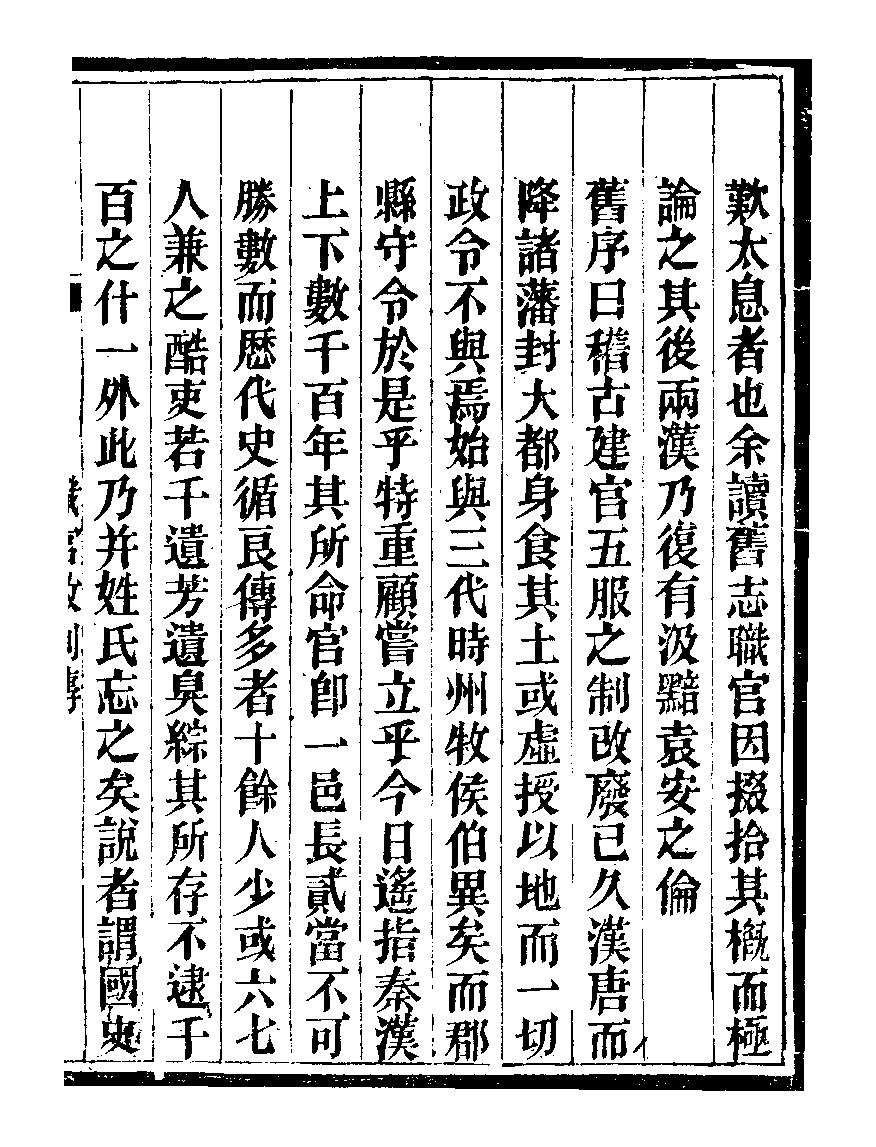 歎太息者也余讀舊志職官因掇拾其概而極
論之其後兩漢乃復有汲黯袁安之倫
舊序曰稽古建官五服之制改廢已久漢唐而
降諸藩封大都身食其土或虛授以地而一切
政令不與焉始與三代時州牧侯伯異矣而郡
縣守令於是乎特重顧嘗立乎今日遙指秦漢
上下數千百年其所命官卽一邑長貳當不可
勝數而歷代史循良傳多者十餘人少或六七
人兼之酷吏若干遺芳遺臭綜其所存不逮千
百之什一外此乃并姓氏忘之矣說者謂國史
職官政列傳